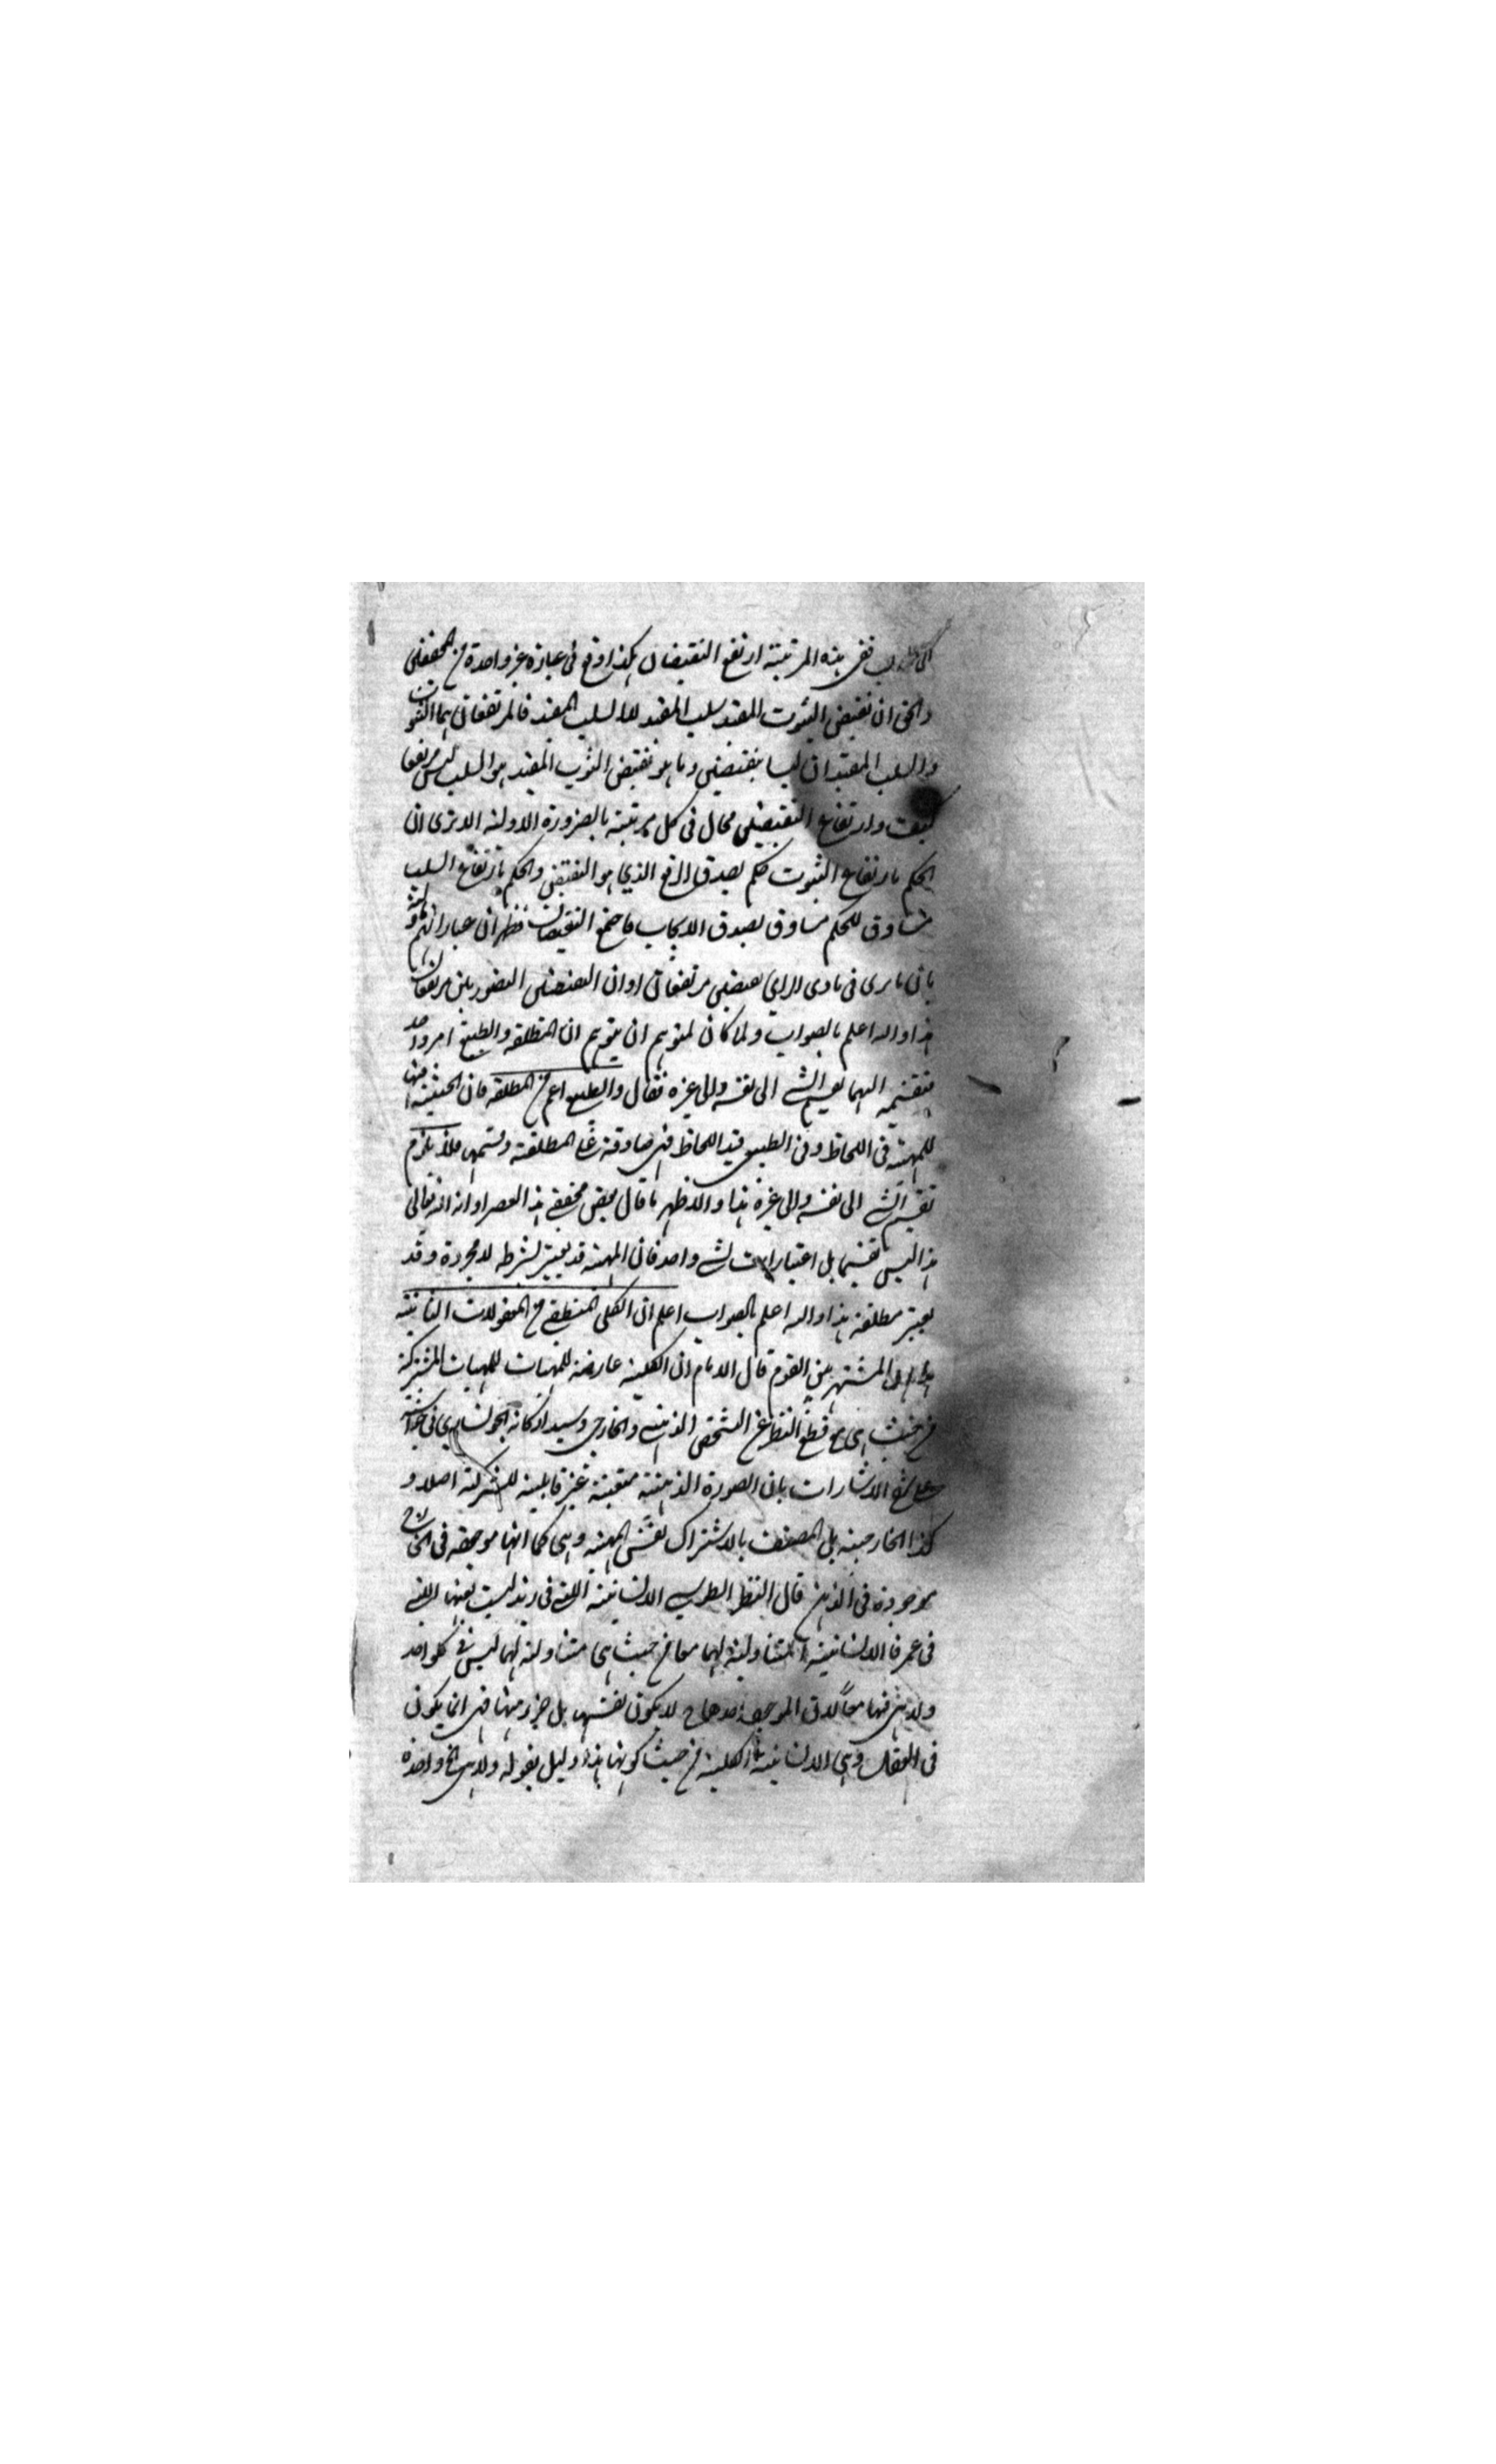 ففي هذه المرتبة ارتفع النقيضان هكذا وقع في عبارة غير واحدة من المحققين
والحق ان نقيض الثبوت المقيد سلب المقيد لا السلب المقيد فالمرتفعان هما الثبوت
والسلب المقيدان ليسا بنقيضين وما هو نقيض الثبوت المقيد هو السلب ليس مرتفعا
كيف وارتفاع النقيضين محال في كل مرتبة بالضرورة الاولية الا ترى ان
الحكم بارتفاع الثبوت حكم بصدق الرفع الذي هو النقيض والحكم بارتفاع السلب
مساوق للحكم مساوق بصدق الايجاب فاجتمع النقيضان فظهر ان عباراتهم
بان ما يرى في بادى الراى نقيضين مرتفعان او ان النقيضين التصوريين مرتفعان
هذا والله اعلم بالصواب ولما كان لمتوهم ان يتوهم ان المطلقة والطبيع امر واحد
فتقسيمه اليهما تقسيم الشي الى نفسه والى غيره فقال والطبيع اعم من المطلقة فان الحيثية فيها
للمهية في اللحاظ وفي الطبيع قيد اللحاظ فهى صادقة على المطلقة وقسمها فلا يلزم
تقسيم الشي الى نفسه والى غيره هذا والاظهر ما قال بعض محققي هذا العصر ادامه الله تعالى
هذا ليس تقسيما بل اعتبارات لشي واحد فان المهية قد يعتبر بشرط لا مجردة وقد
يعتبر مطلقة هذا والله اعلم بالصواب اعلم ان الكلى المنطقي من المعقولات الثانية
هذا هو المشتهر بين القوم قال الامام ان الكلية عارضة للمهيات للمهيات المشتركة
من حيث هى مع قطع النظر عن الشخص الذهني والخارجي وشيد اركانه الجونساري في حواشيه
على شرح الاشارات بان الصورة الذهنية متعينة غير قابلية للشركة اصلا و
كذا الخارجية بل المتصف بالاشتراك نفس المهية وهى كما انها موجودة في الخارج
موجودة في الذهن قال المحقق الطوسي الانسانية التي في زيد ليست بعينها التي
في عمر فالانسانية المتناولة لهما معا من حيث هى متناولة لهما ليس في كل واحد
ولا هى فيها معا لان الموجود احدهما ح لا يكون نفسها بل جزء منها فهى انما يكون
في العقل وهى الانسانية الكلية من حيث كونها هذا دليل بقوله ولا هى الخ واحدة